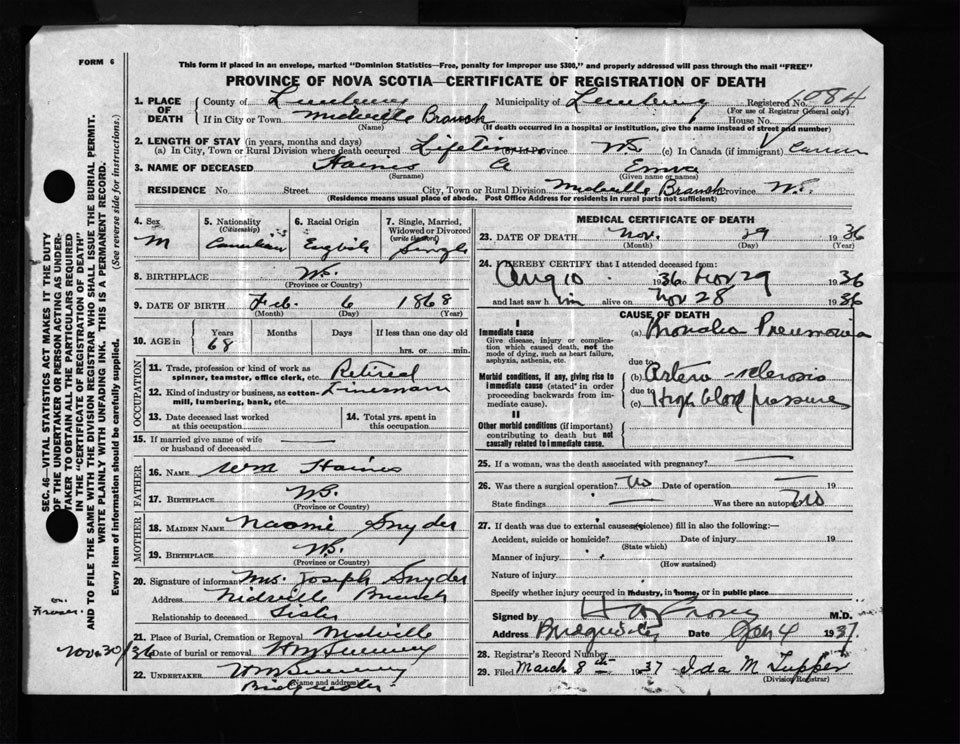 FORM 6
This form if placed in an envelope, marked "Dominion Statistics—Free, penalty for improper use $300," and properly addressed will pass through the mail "FREE"
PROVINCE OF NOVA SCOTIA—CERTIFICATE OF REGISTRATION OF DEATH
SEC. 46—VITAL STATISTICS ACT MAKES IT THE DUTY
OF THE UNDERTAKER OR PERSON ACTING AS UNDER-
TAKER TO OBTAIN ALL THE PARTICULARS REQUIRED
IN THE "CERTIFICATE OF REGISTRATION OF DEATH"
AND TO FILE THE SAME WITH THE DIVISION REGISTRAR WHO SHALL ISSUE THE BURIAL PERMIT.
WRITE PLAINLY WITH UNFADING INK. THIS IS A PERMANENT RECORD.
Every item of Information should be carefully supplied. (See reverse side for instructions.)
1. PLACE OF DEATH
County of Lunenburg Municipality of Lunenburg Registered No. 1084
(For use of Registrar General only)
If in City or Town Midville Branch House No.
(Name) (If death occurred in a hospital or institution, give the name instead of street and number)
2. LENGTH OF STAY (in years, months and days)
(a) In City, Town or Rural Division where death occurred Lifetime Province N.S. (c) In Canada (if immigrant)
3. NAME OF DECEASED Haines
(Surname) (Given name or names)
RESIDENCE No. Street City, Town or Rural Division Midville Branch Province N.S.
(Residence means usual place of abode. Post Office Address for residents in rural parts not sufficient)
4. Sex M
5. Nationality (Citizenship) Canadian
6. Racial Origin English
7. Single, Married, Widowed or Divorced (write the word) Single
8. BIRTHPLACE N.S.
(Province or Country)
9. DATE OF BIRTH Feb. 6 1868
(Month) (Day) (Year)
10. AGE in Years 68 Months Days If less than one day old
hrs. or min.
OCCUPATION
11. Trade, profession or kind of work as spinner, teamster, office clerk, etc. Retired
12. Kind of industry or business, as cotton-mill, lumbering, bank, etc. Linesman
13. Date deceased last worked at this occupation
14. Total yrs. spent in this occupation
15. If married give name of wife or husband of deceased —
FATHER
16. NAME Wm Haines
17. BIRTHPLACE N.S.
(Province or Country)
MOTHER
18. MAIDEN NAME Naomi Snyder
19. BIRTHPLACE N.S.
(Province or Country)
20. Signature of informant Mrs. Joseph Snyder
Address Midville Branch
Relationship to deceased Sister
21. Place of Burial, Cremation or Removal Midville
Date of burial or removal Nov. 30/36
22. UNDERTAKER
(Name and address)
Bridgewater
MEDICAL CERTIFICATE OF DEATH
23. DATE OF DEATH Nov. 29 1936
(Month) (Day) (Year)
24. I HEREBY CERTIFY that I attended deceased from:
Aug 10 1936 to Nov 29 1936
and last saw him alive on Nov 28 1936
CAUSE OF DEATH
I
Immediate cause
Give disease, injury or complication which caused death, not the mode of dying, such as heart failure, asphyxia, asthenia, etc.
(a) Broncho Pneumonia
due to
Morbid conditions, if any, giving rise to immediate cause (stated in order proceeding backwards from immediate cause).
(b) Arterio-sclerosis
due to
(c) High blood pressure
II
Other morbid conditions (if important) contributing to death but not causally related to immediate cause.
25. If a woman, was the death associated with pregnancy? —
26. Was there a surgical operation? No Date of operation — 19
State findings — Was there an autopsy? No
27. If death was due to external causes (violence) fill in also the following:—
Accident, suicide or homicide? Date of injury 19
(State which)
Manner of injury
(How sustained)
Nature of injury
Specify whether injury occurred in industry, in home, or in public place
Signed by M.D.
Address Bridgewater Date Jan 4 1937.
28. Registrar's Record Number
29. Filed March 8th 1937 Ida M Tupper
(Division Registrar)